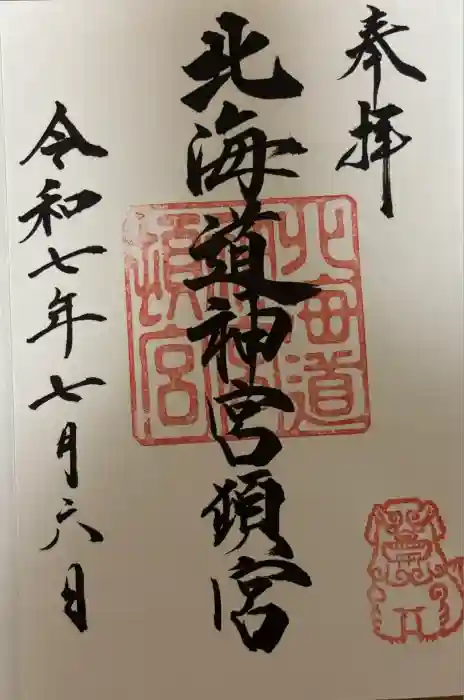 奉拝
北海道神宮頓宮
令和七年七月六日
北海道
神宮
頓宮